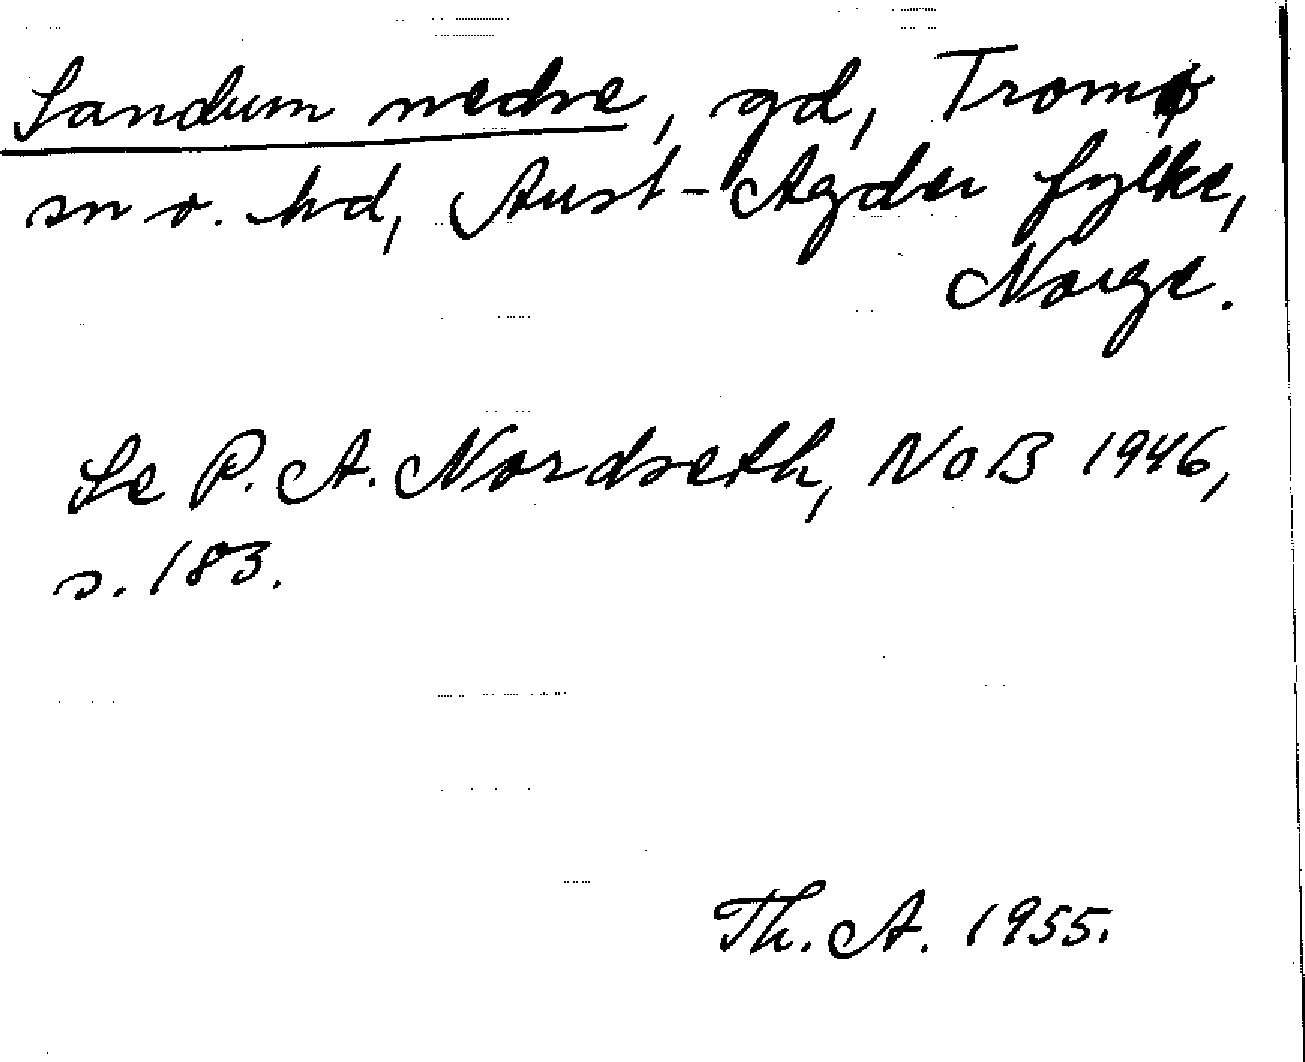 Sandum nedre, gd, Tromø
sn o. hd, Aust-Agder fylke,
Norge.
Se P. A. Nordseth, NoB 1946,
s. 183.
Th. A. 1955.